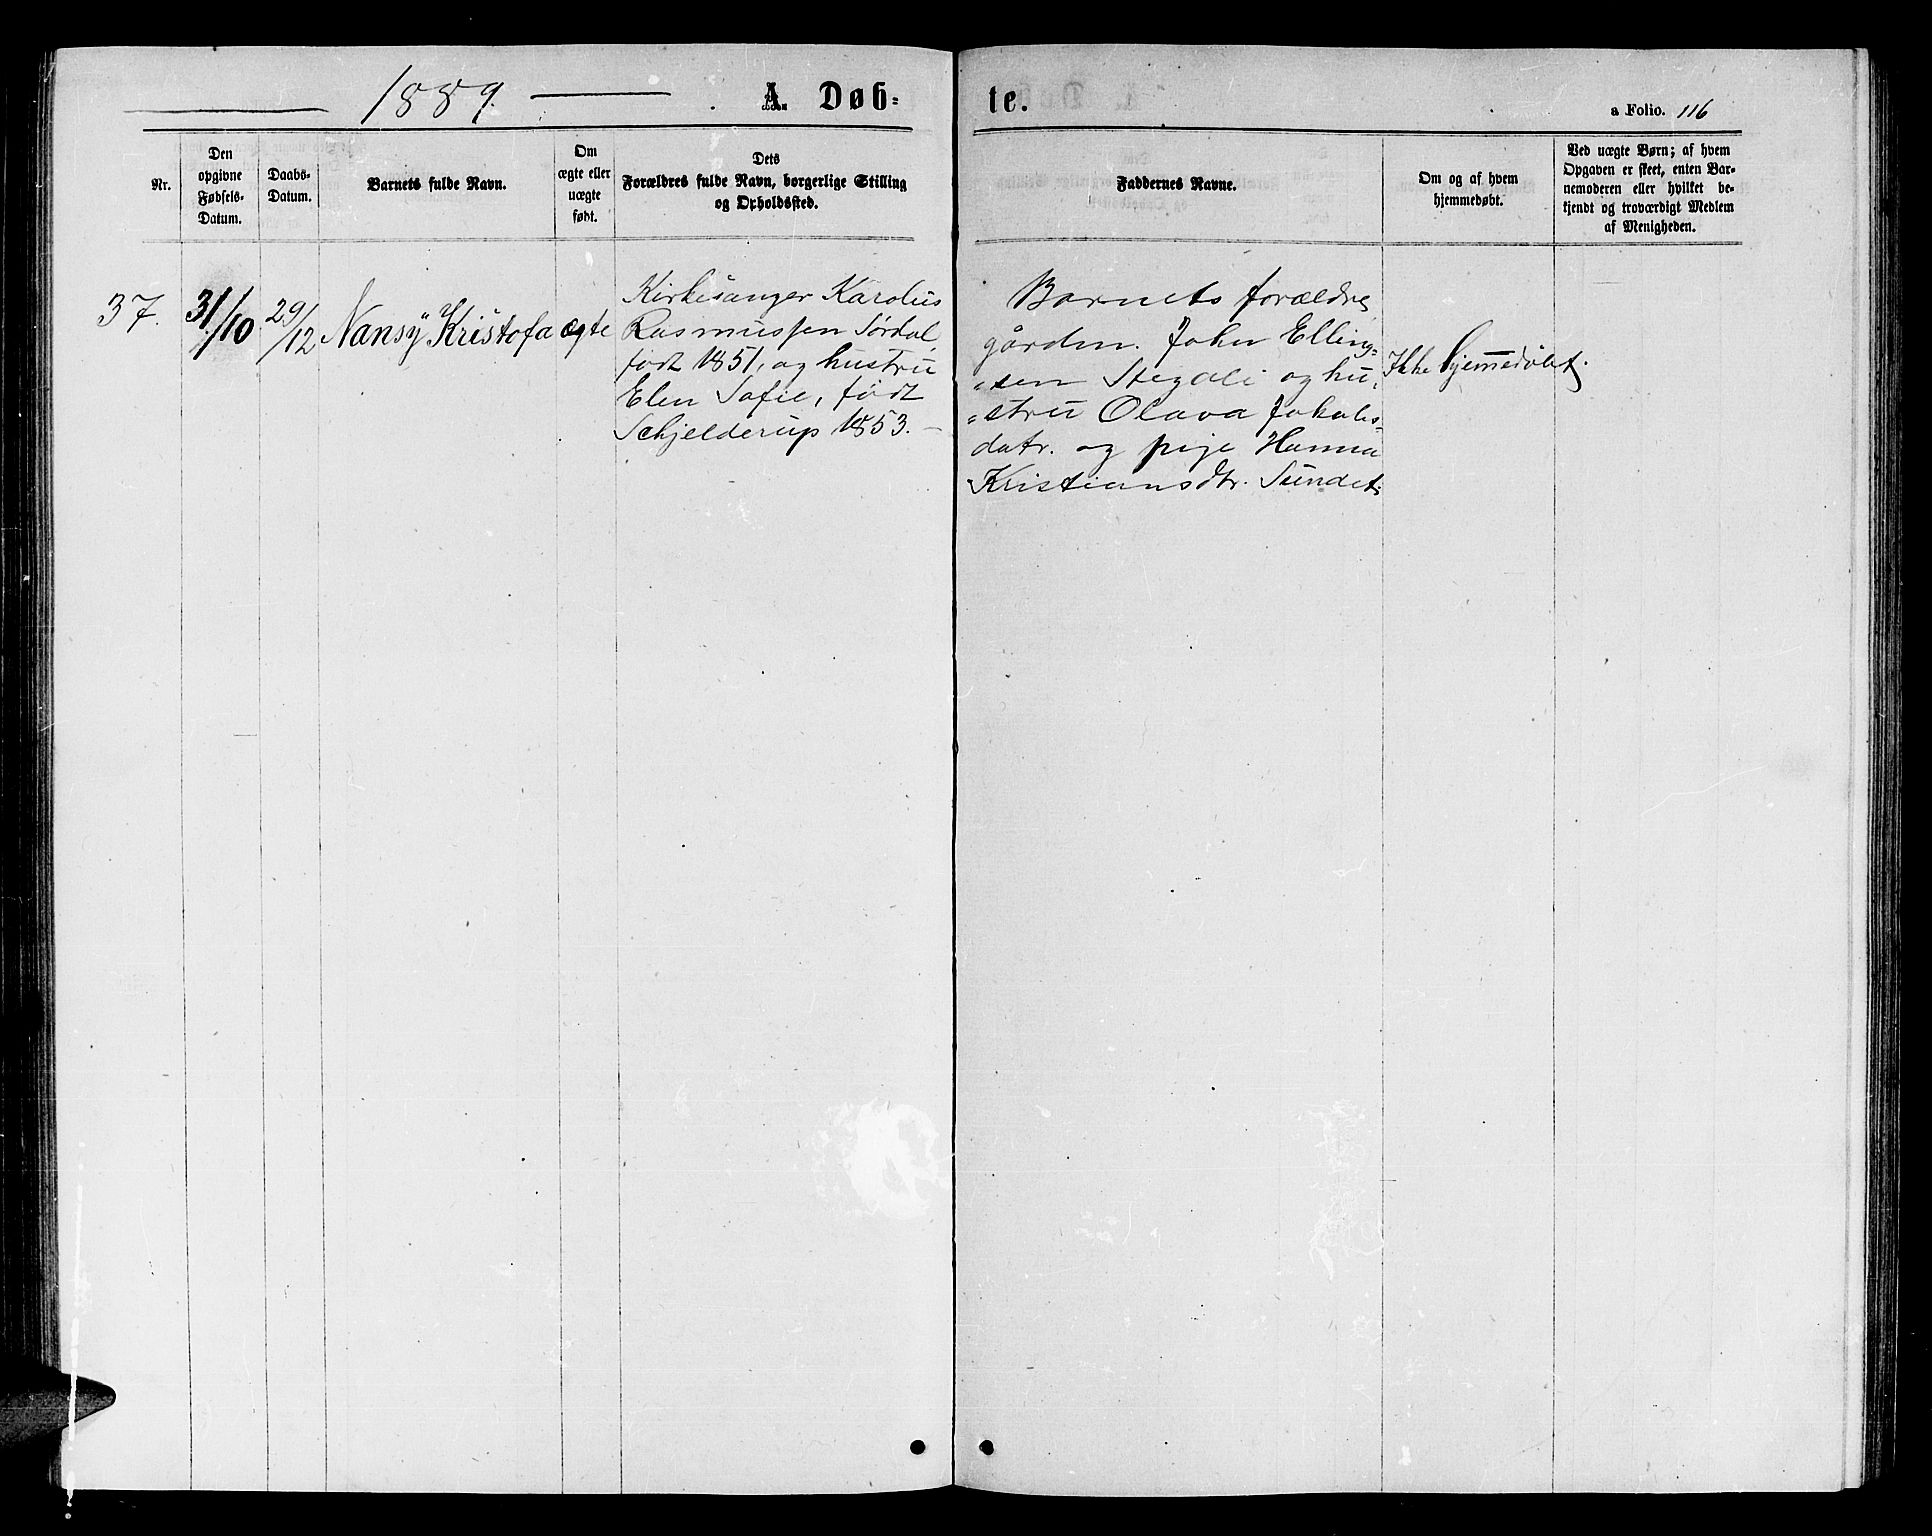 1889. A. Døb=
te. a Folio. 116
Nr.
Den
opgivne
Fødsels-
Datum.
Daabs-
Datum.
Barnets fulde Navn.
Om
ægte eller
uægte
født.
Dets
Forældres fulde Navn, borgerlige Stilling
og Opholdssted.
Faddernes Navne.
Om og af hvem
hjemmedøbt.
Ved uægte Børn; af hvem
Opgaven er skeet, enten Bar-
nemoderen eller hvilket be-
kjendt og troværdigt Medlem
af Menigheden.
37.
31/10
29/12
Nansy Kristofa
ægte
Kirkesanger Karolus
Rasmussen Sørdal,
født 1851, og hustru
Elen Sofie, født
Schjelderup 1853. —
Barnets forældre
gården. Joker Elling=
"sen Stegali og hu=
"stru Olava Jakobs=
datr. og pige Hanna
Kristiansdtr. Sundet.
Ikke hjemmedøbt.